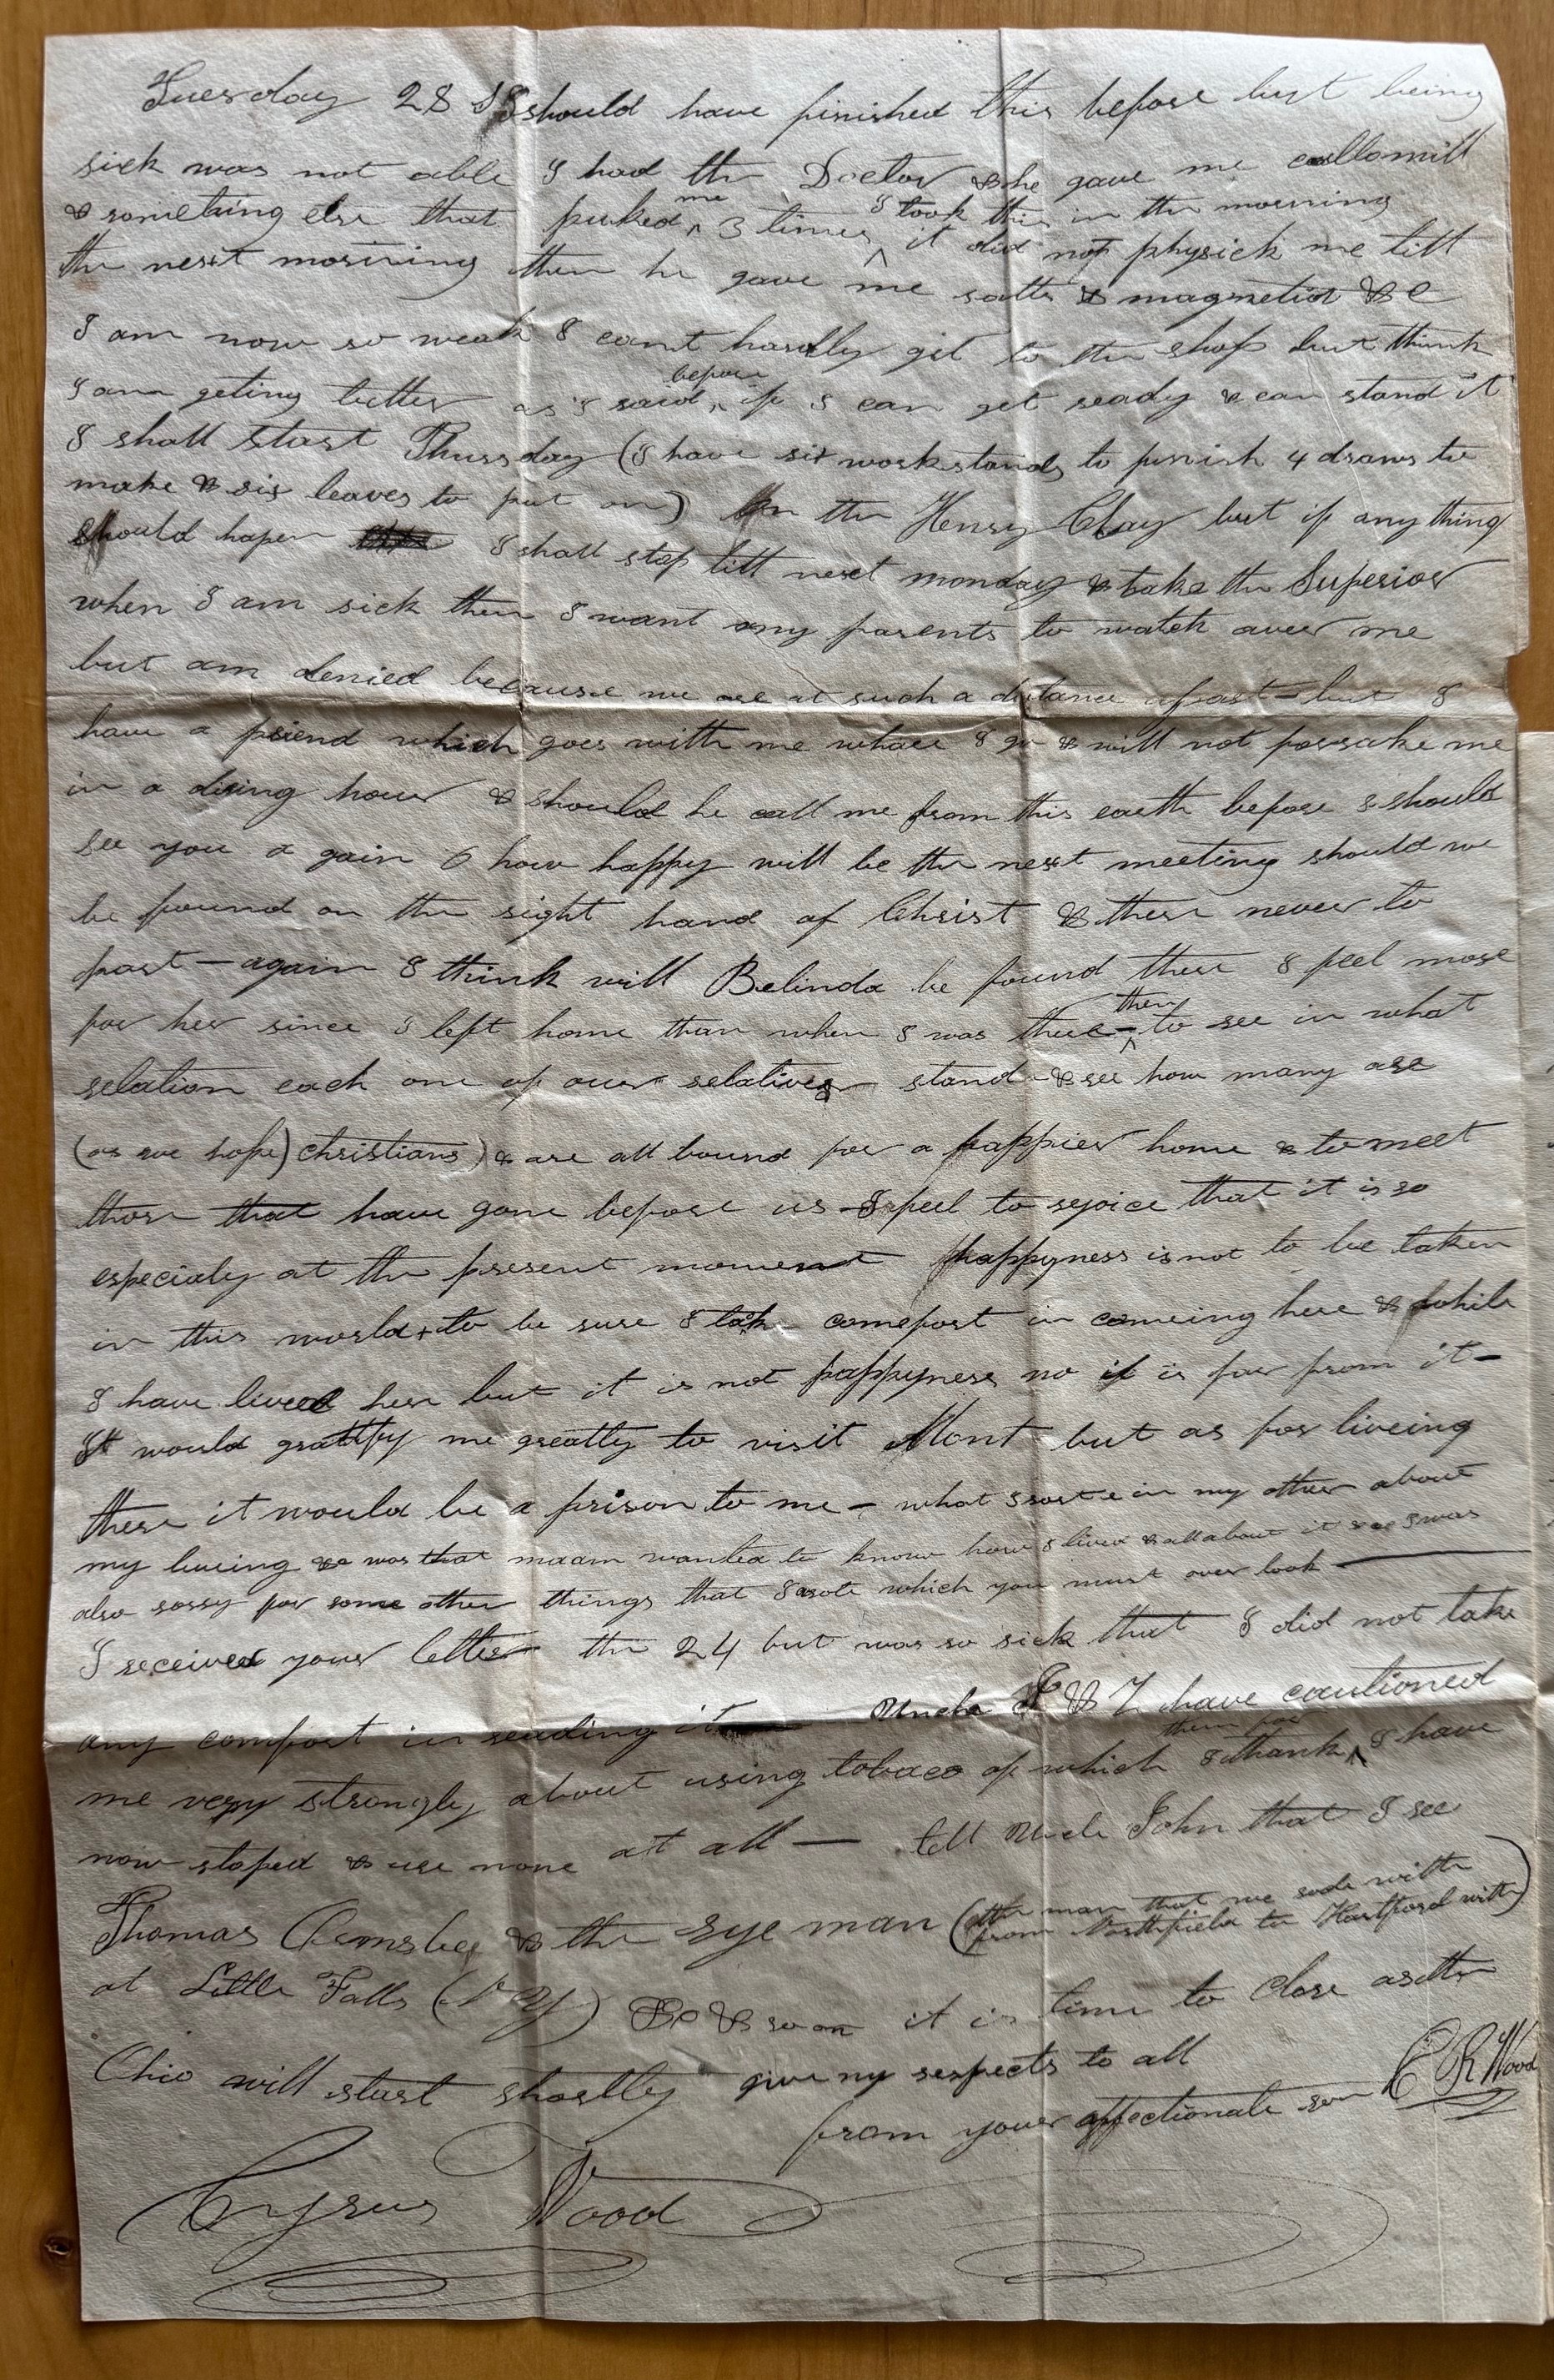 Tuesday 28 I should have finished this before but being
sick was not able I had the Doctor & he gave me callomill
& something else that puked me 3 times I took this in the morning it did not physick me till
the next morning then he gave me salts & magnetia &c
I am now so weak I cant hardly git to the shop but think
I am geting better as I said before if I can get ready & can stand it
I shall start Thursday (I have six workstands to finish 4 draws to
make & six leaves to put on) in the Henry Clay but if any thing
should hapen I shall stop till next monday & take the Superior
when I am sick then I want my parents to watch aver me
but am denied because we are at such a distance apart - but I
have a friend which goes with me whare I go & will not forsake me
in a dieing hour & should he call me from this earth before I should
see you a gain O how happy will be the next meeting should we
be found on the right hand of Christ & there never to
part — again I think will Belinda be found there I feel more
for her since I left home than when I was there - then to see in what
relation each one of our relatives stand & see how many are
(as we hope) christians) & are all bound for a happier home & to meet
those that have gone before us I feel to rejoice that it is so
especialy at the present moment happyness is not to be taken
in this world + to be sure I take comefort in comeing here & while
I have lived here but it is not happyness no it is far from it -
It would grattify me greatly to visit Mont but as for liveing
there it would be a prison to me - what I rote in my other about
my liveing &c was that maam wanted to know how I lived & all about it I was
also sorry for some other things that I wrote which you must over look —
I received your letter the 24 but was so sick that I did not take
any comfort in reading it Uncle J & Z have cautioned
me very strongly about using tobaco of which I thank them for I have
now stoped & use none at all — tell Uncle John that I see
Thomas & the rye man (the man that we rode with from Northfield to Hartford with)
at Little Falls (N Y) & so on it is time to close as the
Ohio will start shortly give my respects to all
from your affectionate son C R Wood
Cyrus Wood